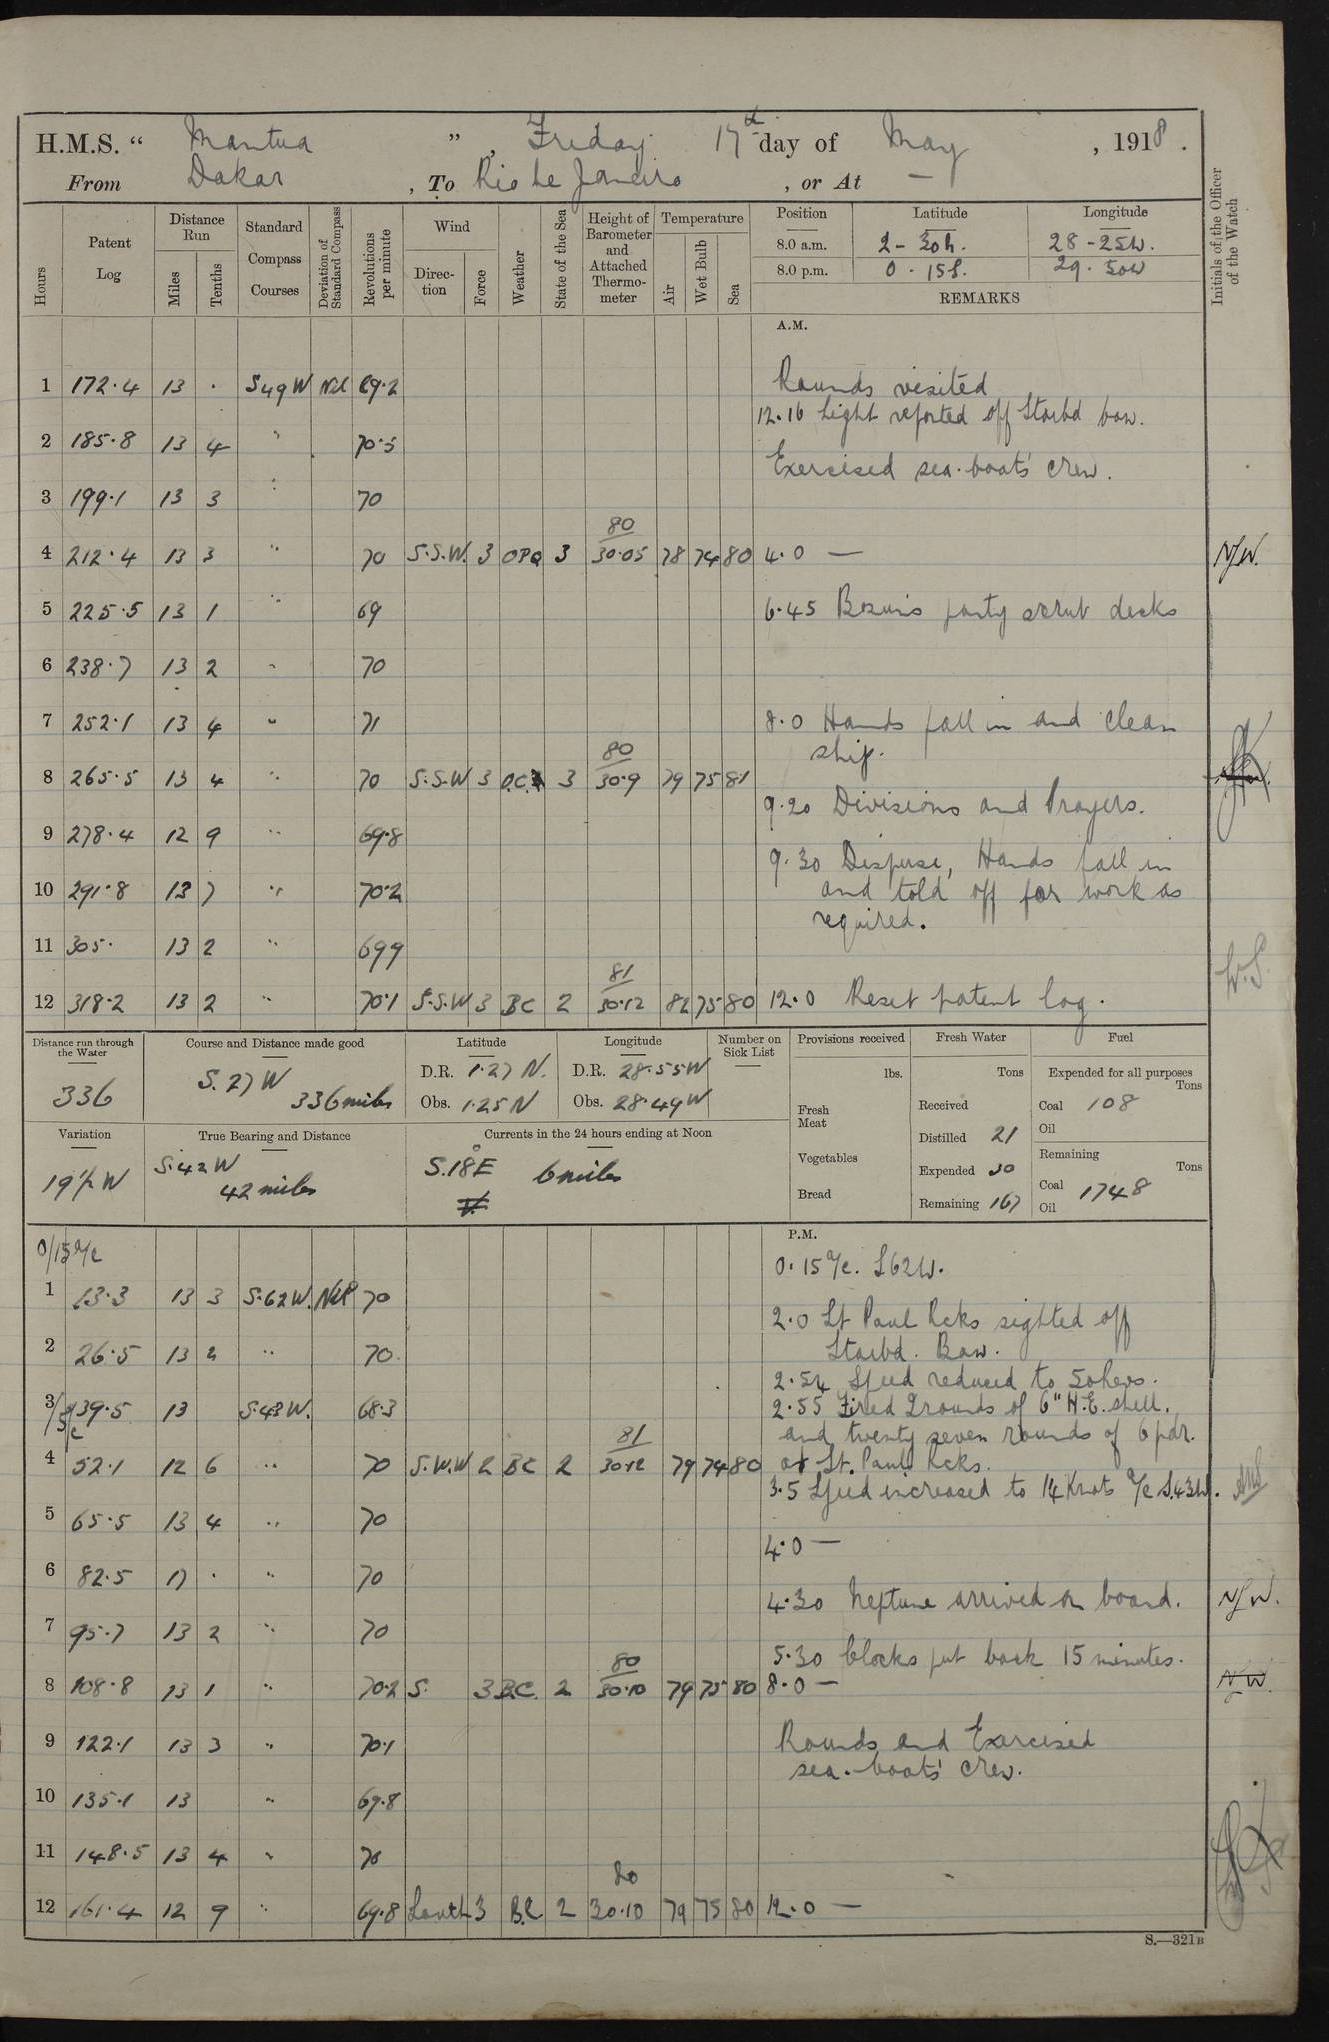 H.M.S. “ Mantua ” , Friday 17th day of May , 1918 .
From Dakar , To Rio de Janeiro , or At —
Hours
Patent Log
Distance Run
Miles
Tenths
Standard Compass Courses
Deviation of Standard Compass
Revolutions per minute
Wind
Direction
Force
Weather
State of the Sea
Height of Barometer and Attached Thermometer
Temperature
Air
Wet Bulb
Sea
Position Latitude Longitude
8.0 a.m. 2 - 30 N. 28 - 25 W.
8.0 p.m. 0 . 15 S. 29 . 50 W
REMARKS
Initials of the Officer of the Watch
A.M.
1 172.4 13 . S 49 W Nil 69.2 Rounds visited
12.16 Light reported off Starbd bow.
2 185.8 13 4 " 70.5
Exercised sea-boats' crew.
3 199.1 13 3 " 70
80
4 212.4 13 3 " 70 S.S.W. 3 OPQ 3 30.05 78 74 80 4.0 — NJW.
5 225.5 13 1 " 69 6.45 party scrub decks
6 238.7 13 2 " 70
7 252.1 13 4 " 71 8.0 Hands fall in and clean
80 ship.
8 265.5 13 4 " 70 S.S.W 3 O.C. 3 30.9 79 75 81
9.20 Divisions and Prayers.
9 278.4 12 9 " 69.8
9.30 Disperse, Hands fall in
10 291.8 13 7 " 70.2 and told off for work as
required.
11 305. 13 2 " 69 9
81
12 318.2 13 2 " 70.1 S.S.W 3 BC 2 30.12 82 75 80 12.0 Reset patent log. W.S.
Distance run through the Water
336
Course and Distance made good
S. 27 W
336 miles
Latitude
D.R. 1.27 N.
Obs. 1.25 N
Longitude
D.R. 28.55 W
Obs. 28.49 W
Number on Sick List
—
Provisions received
lbs.
Fresh Meat
Vegetables
Bread
Fresh Water
Tons
Received
Distilled 21
Expended 30
Remaining 167
Fuel
Expended for all purposes
Tons
Coal 108
Oil
Remaining
Tons
Coal 1748
Oil
Variation
19 1/2 W
True Bearing and Distance
S. 42 W
42 miles
Currents in the 24 hours ending at Noon
S. 18 E 6 miles
P.M.
0/15 a/c 0.15 a/c. S62W.
1 13.3 13 3 S.62 W. Nil 70
2.0 St Paul Rcks sighted off
2 26.5 13 2 " 70. Starbd. Bow.
2.54 Speed reduced to 50 revs.
3/5 a/c 39.5 13 S.43 W. 68.3 2.55 Fired 2 rounds of 6" H.E. shell.
81 and twenty seven rounds of 6 pdr.
4 52.1 12 6 " 70 S.W.W 2 BC 2 30.12 79 74 80 at St. Pauls Rcks.
3.5 Speed increased to 14 Knots a/c S.43W.
5 65.5 13 4 " 70
4.0 —
6 82.5 17 . " 70
4.30 Neptune arrived on board. NJW.
7 95.7 13 2 " 70
80 5.30 Clocks put back 15 minutes.
8 108.8 13 1 " 70.2 S. 3 B.C. 2 30.10 79 75 80 8.0 — NW.
9 122.1 13 3 " 70.1 Rounds and Exercised
sea-boats' crew.
10 135.1 13 " 69.8
11 148.5 13 4 " 70
80
12 161.4 12 9 " 69.8 South 3 B.C 2 30.10 79 75 80 12.0 —
S.—321B